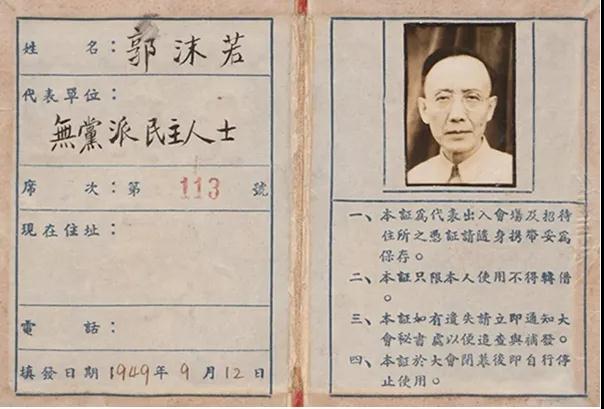 姓 名：郭沫若
代表單位：
無黨派民主人士
席 次：第 113 號
現在住址：
電 話：
填發日期 1949年 9 月 12 日
一、本証爲代表出入會場及招待
住所之憑証請隨身携帶妥爲
保存。
二、本証只限本人使用不得轉借
。
三、本証如有遺失請立即通知大
會秘書處以便追查與補發。
四、本証於大會閉幕後即自行停
止使用。